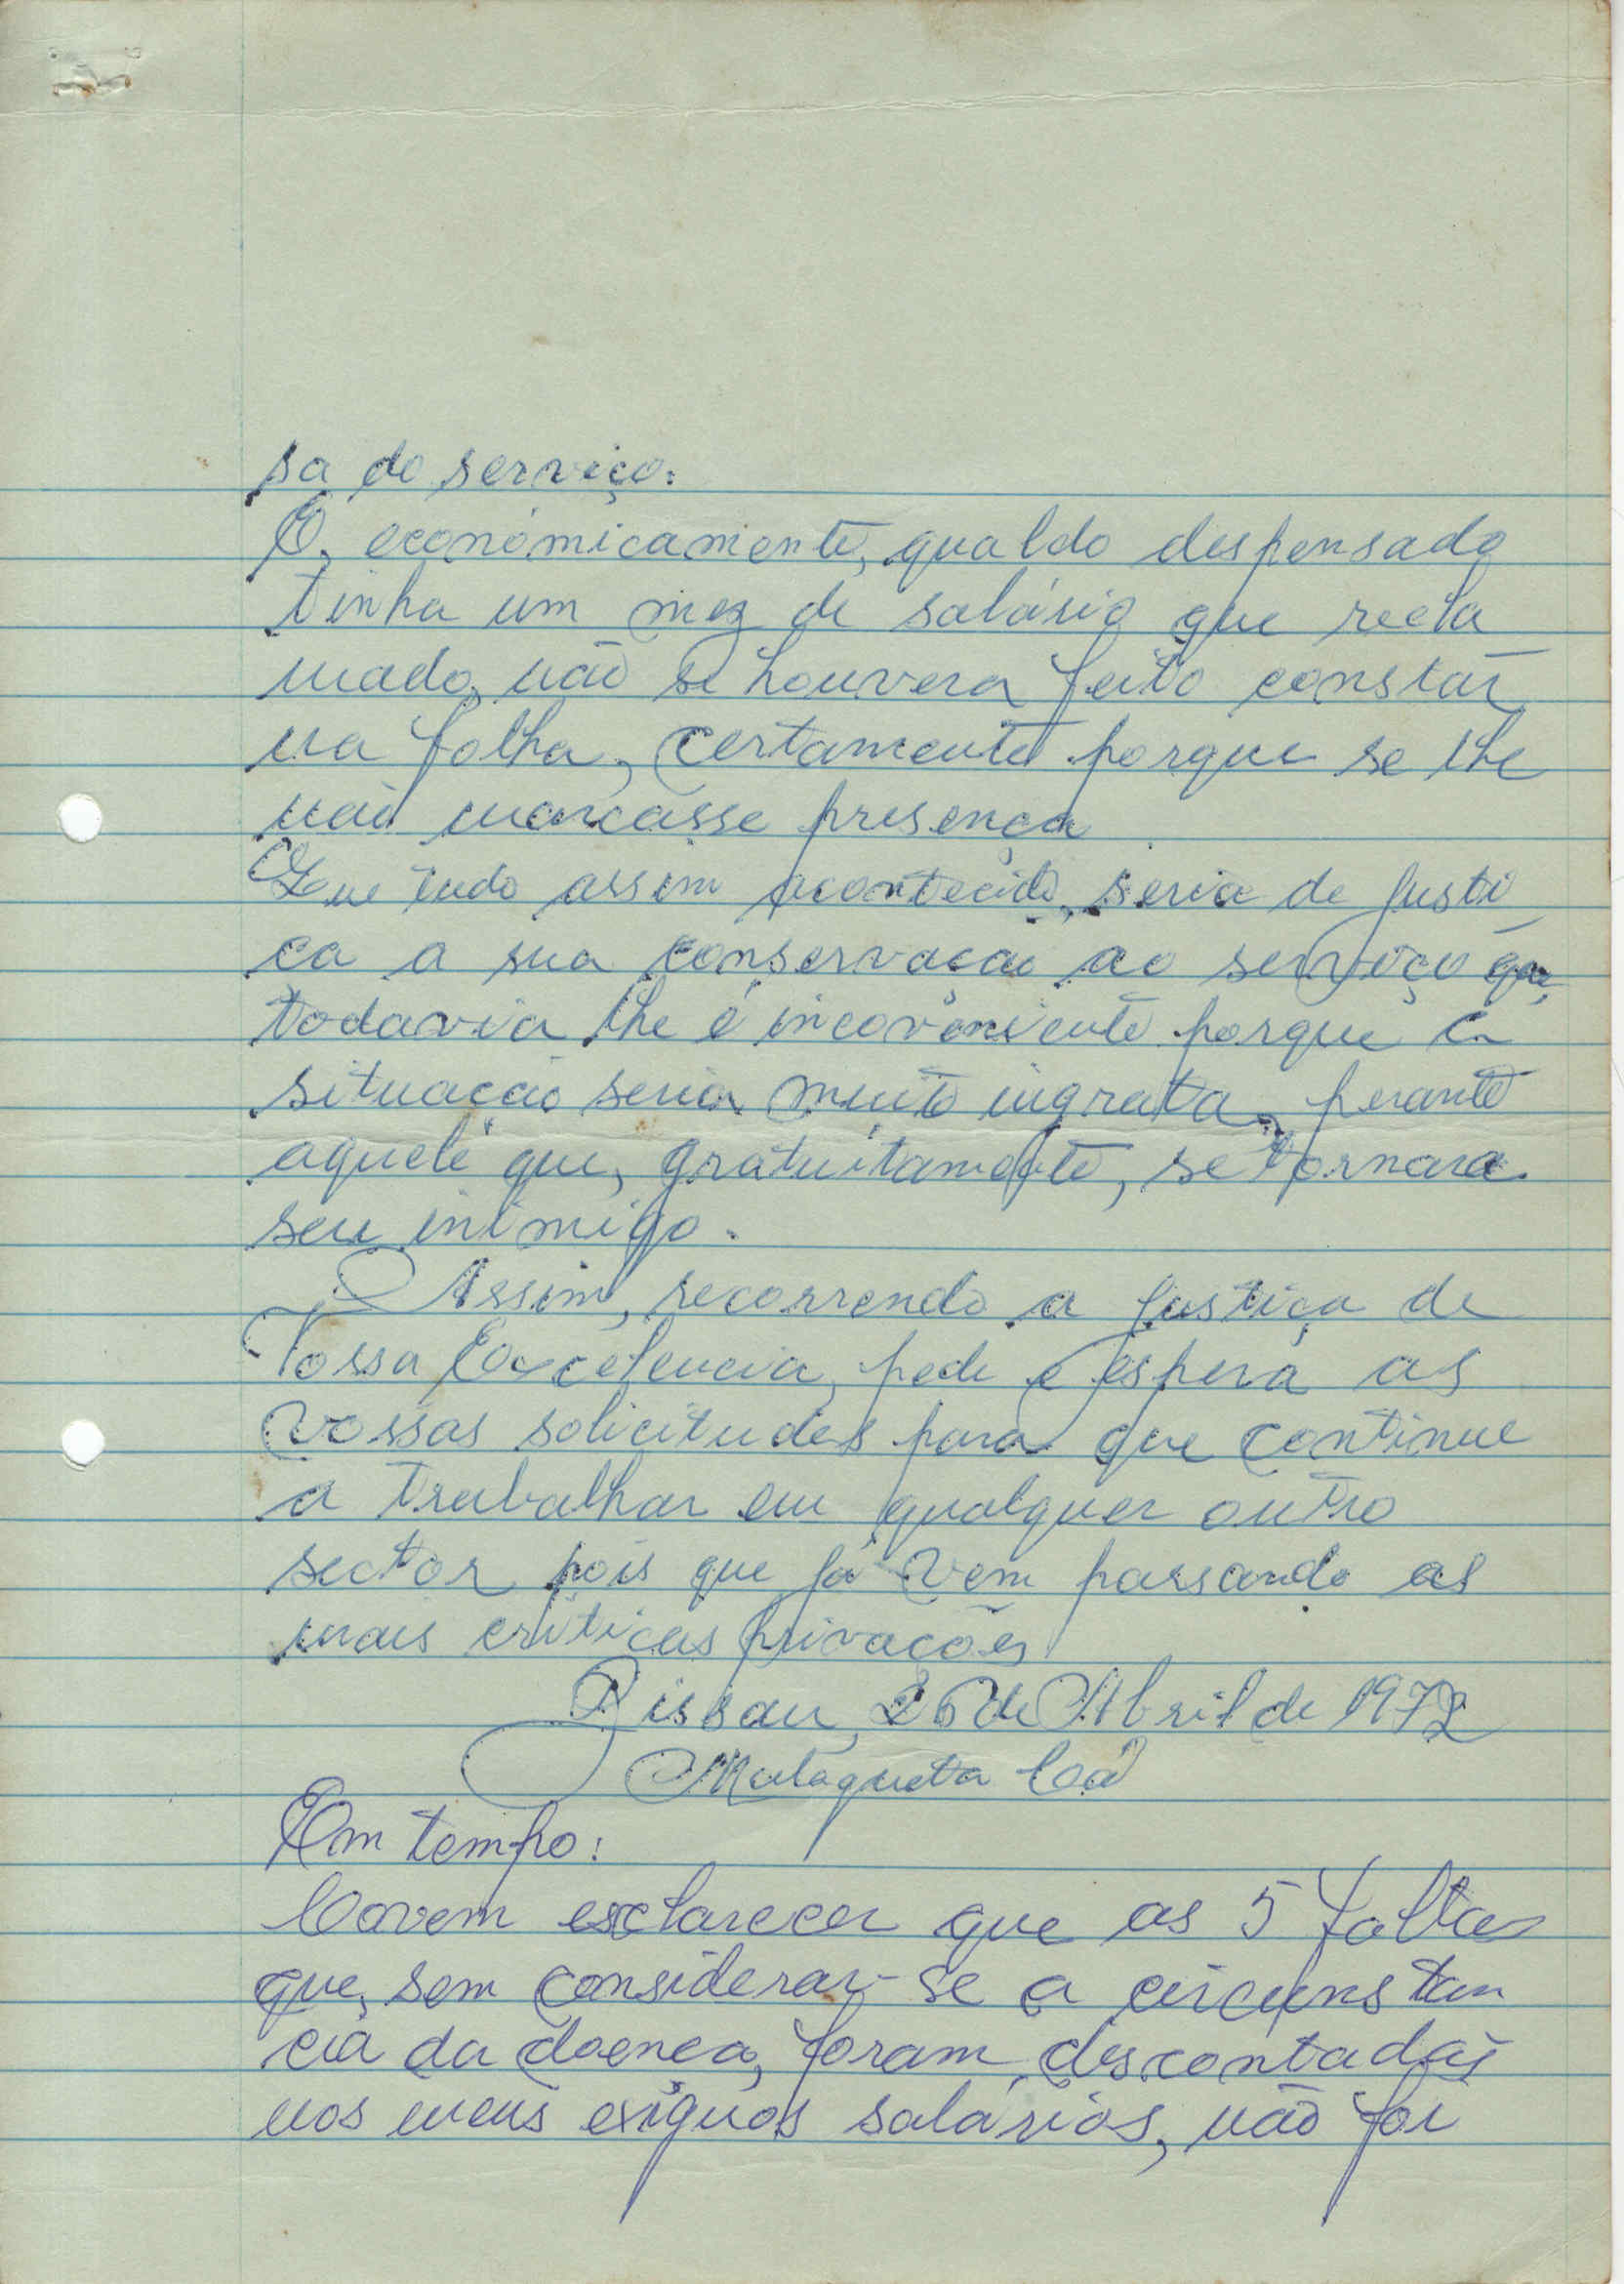 sa do serviço.
E, económicamente, qualdo dispensado
tinha um mez de salário que recla
mado, não se houvera feito constar
na folha, certamente porque se lhe
não marcasse presença
Que tudo assim acontecido, seria de justi
ça a sua conservação ao serviço que
todavia lhe é incoveniente porque a
situação seria muito ingrata, perante
aquele que, gratuitamente, se tornara
seu inimigo.
Assim, recorrendo a justiça de
Vossa Excelencia, pede e espera as
vossas solicitudes para que continue
a trabalhar em qualquer outro
sector pois que já vem passando as
mais críticas privações
Bissau, 26 de Abril de 1972
Malagueta Cá
Em tempo:
Covem esclarecer que as 5 faltas
que, sem considerar-se a circunstan
cia da doença, foram descontadas
nos meus exíguos salários, não foi